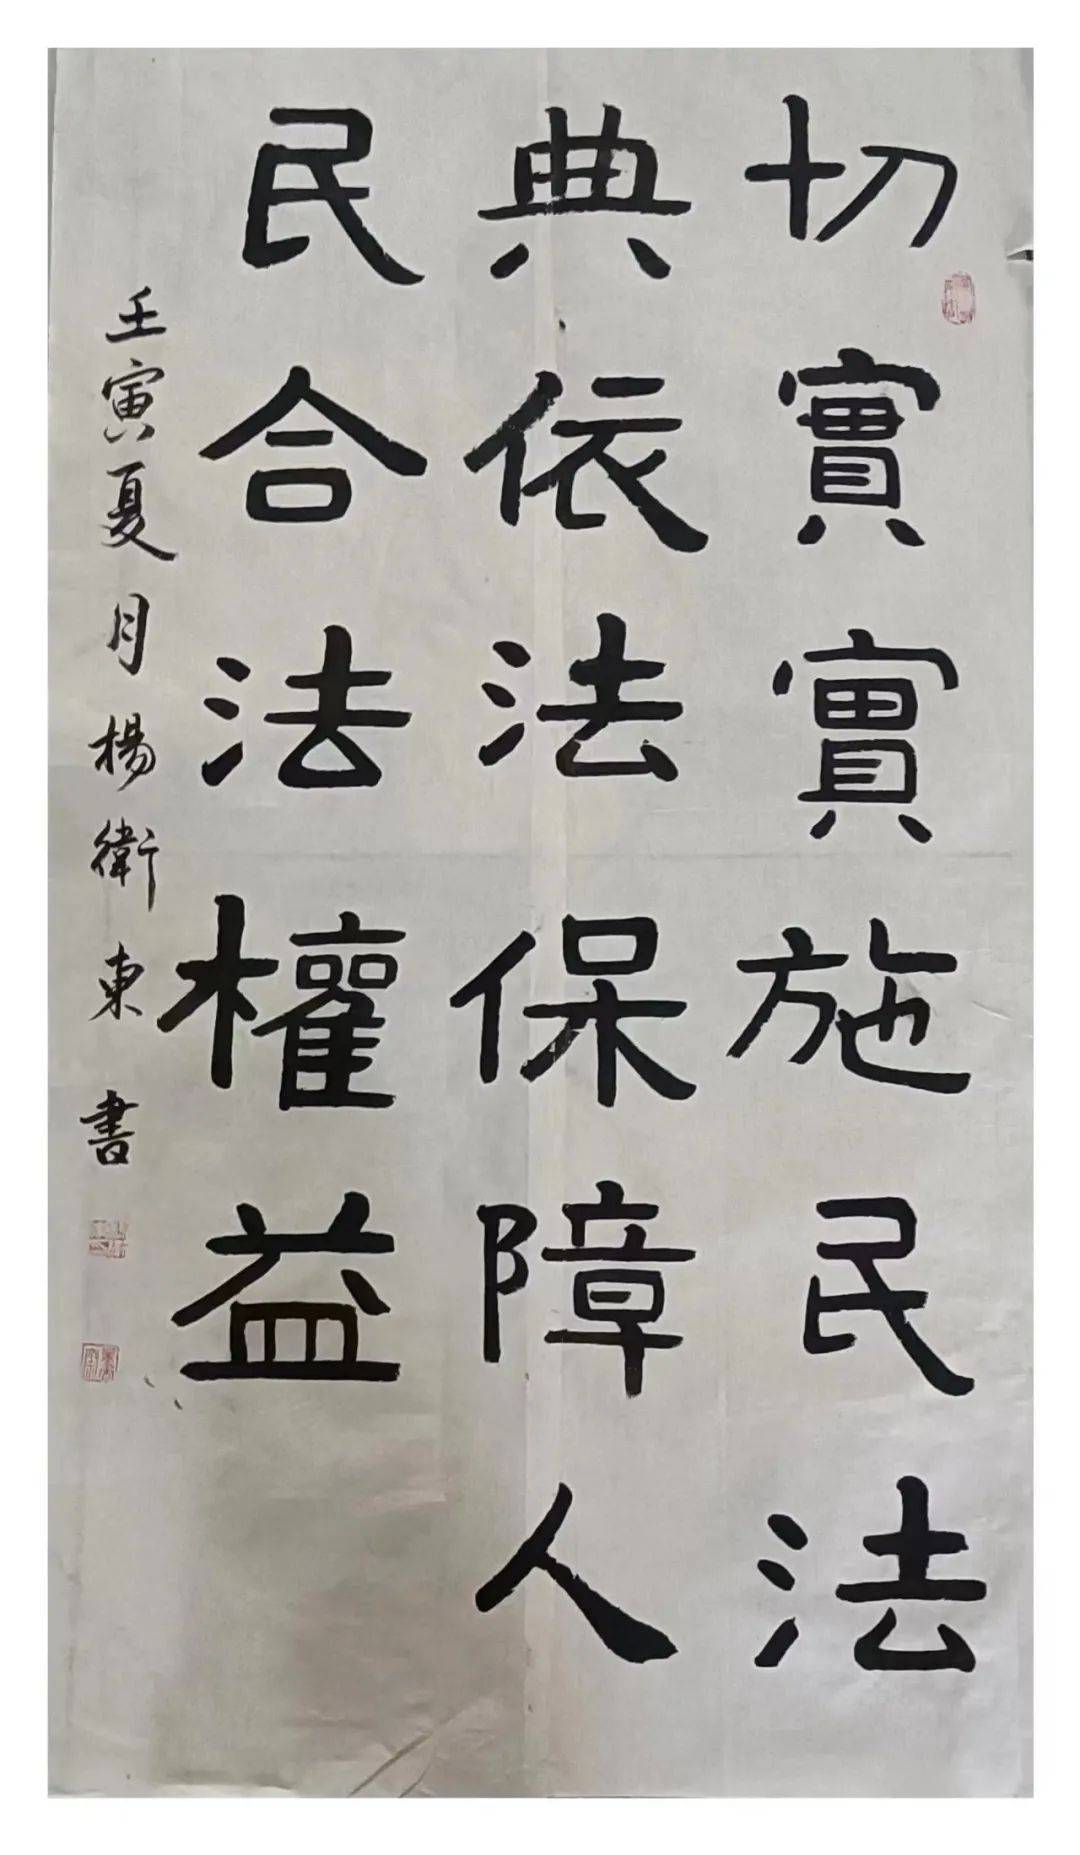 切實實施民法
典依法保障人
民合法權益
壬寅夏月楊衛東書